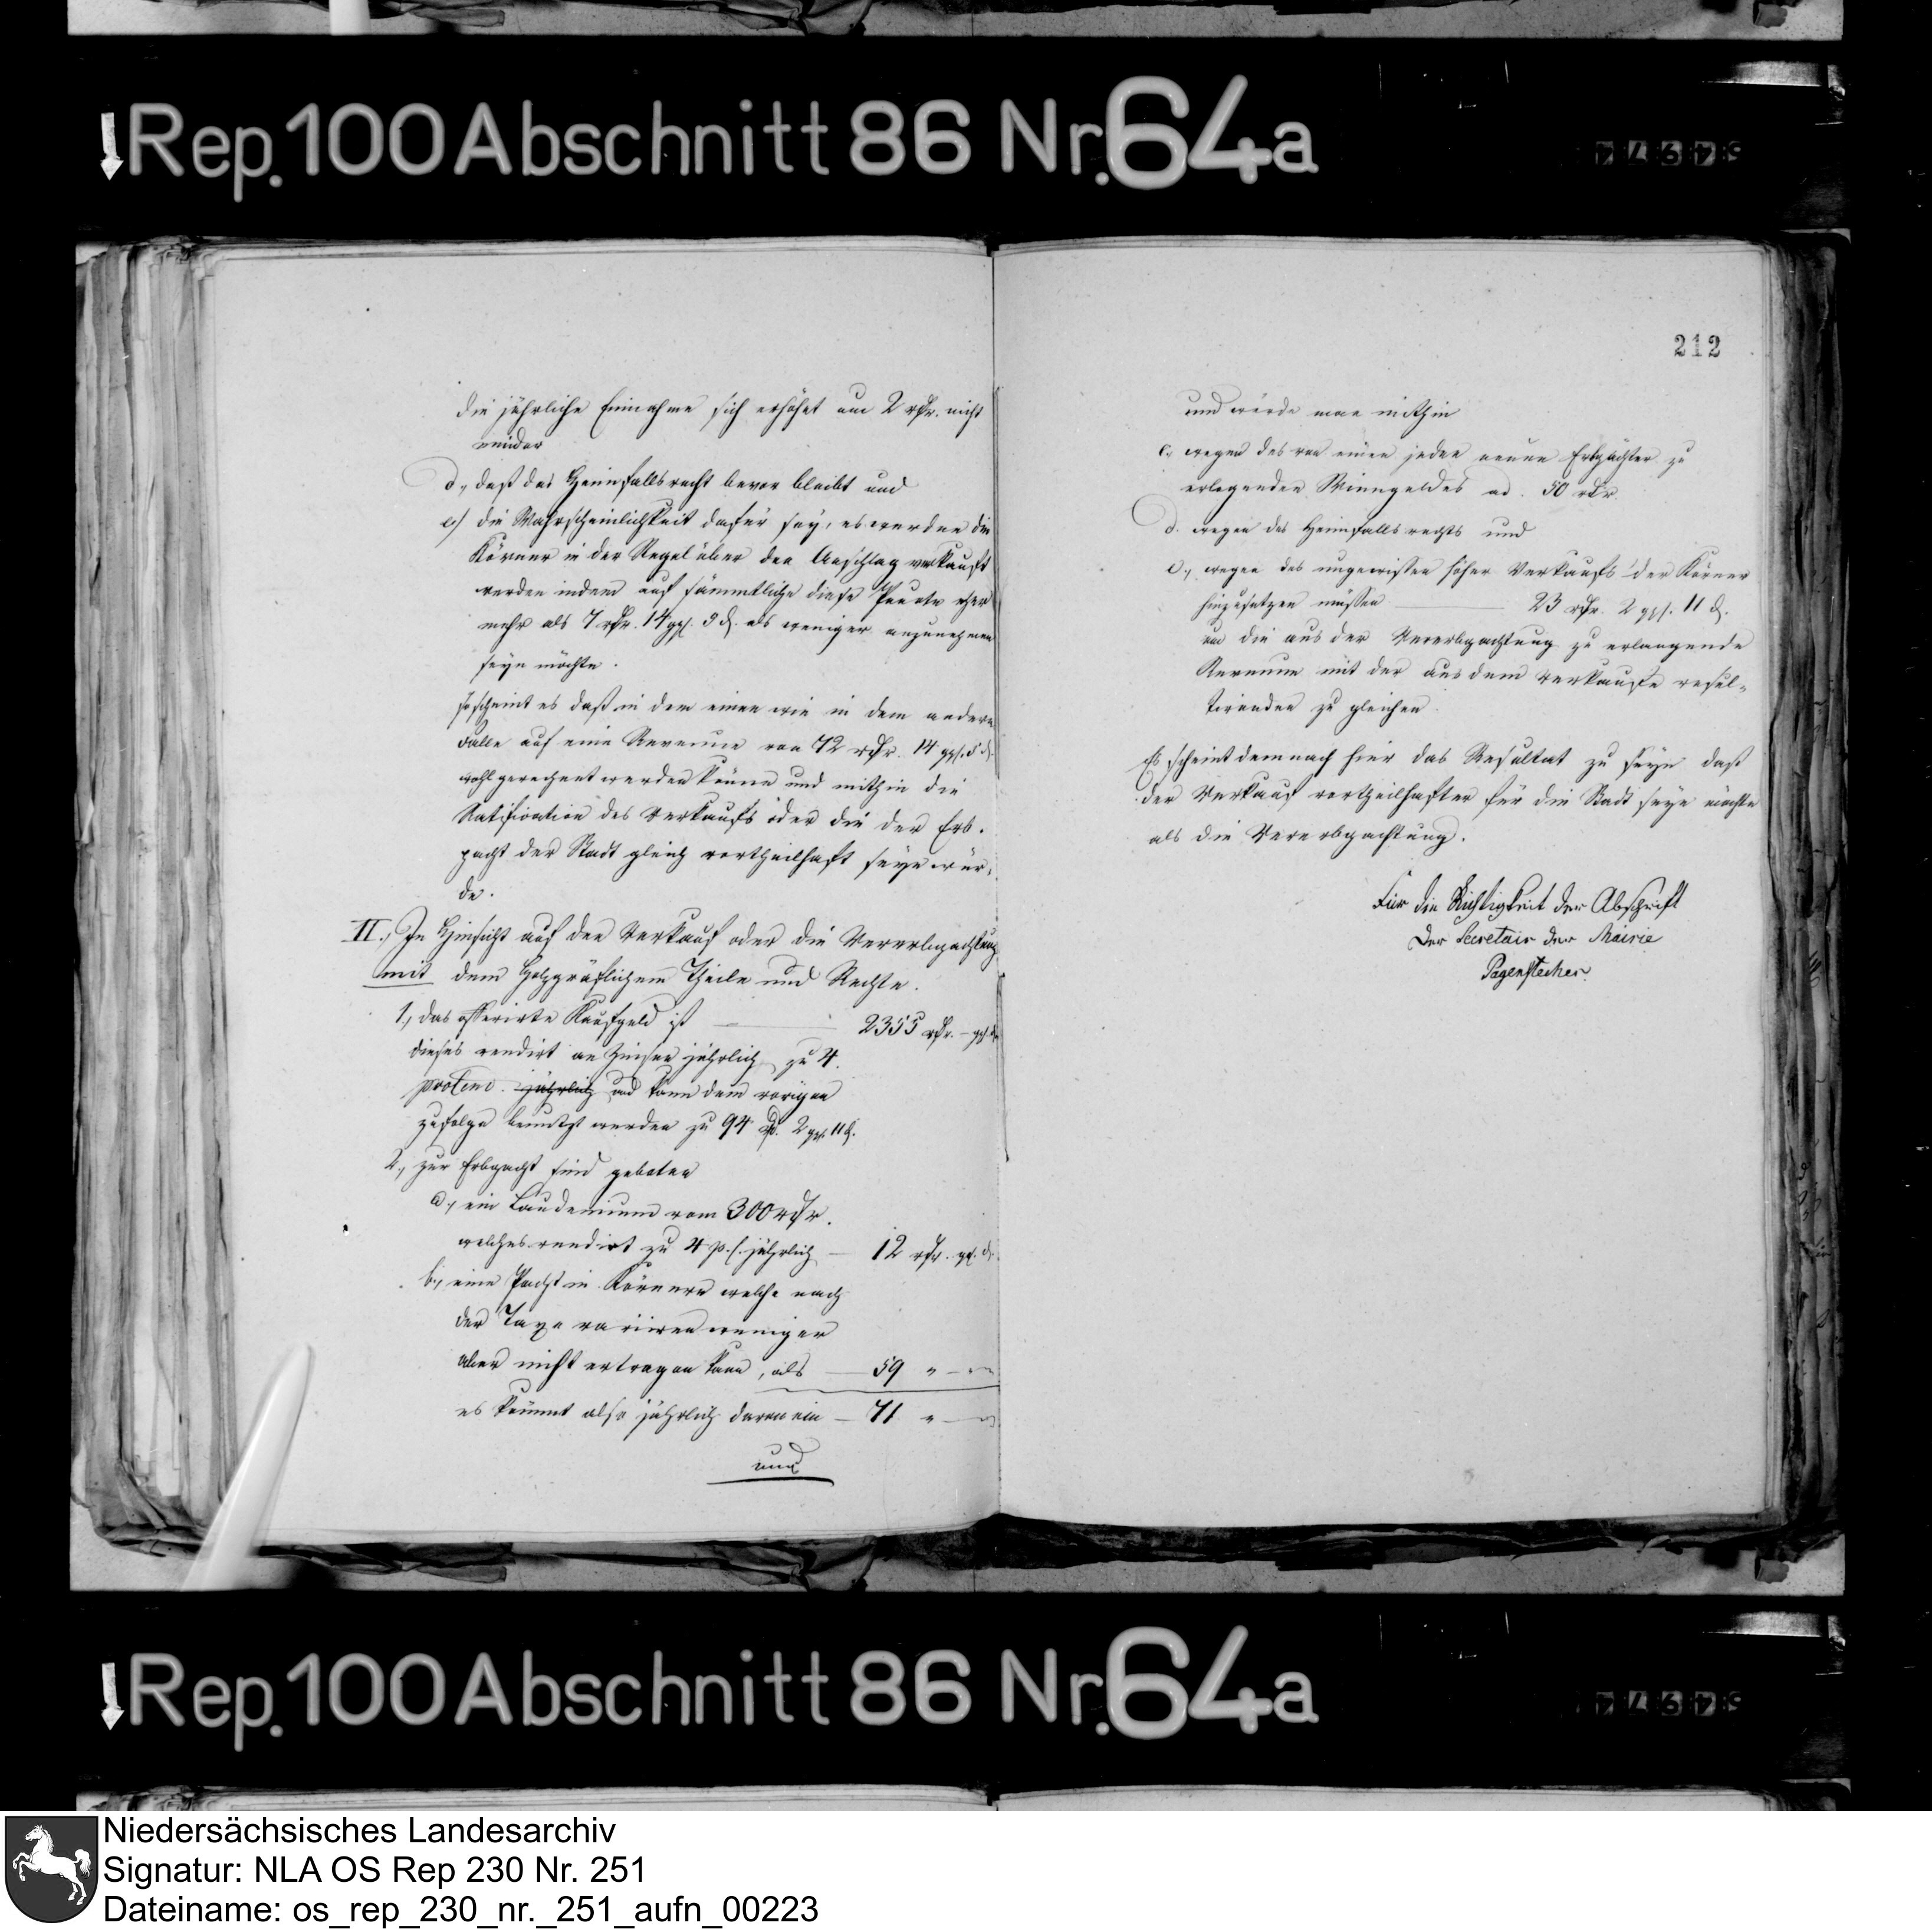 Rep. 100 Abschnitt 86 Nr. 64a
die jährliche Einnahme sich erhöhet um 2 rthr. nicht
minder
d., daß das Heimfallsrecht bevor bleibt und
e.) die Wahrscheinlichkeit dafür sey, es werden die
Körner in der Regel über den Anschlag verkauft
werden indem auf sämmtliche diese Puncte eher
mehr als 7 rthr. 14 ggl. 5 d. als weniger anzunehmen
seyn möchte.
So scheint es daß in dem einen wie in dem andern
Falle auf eine Revenue von 72 rthr. 14 ggl. 5 d.
wohl gerechnet werden könne und mithin die
Ratification des Verkaufs oder die der Erb-
pacht der Stadt gleich vortheilhaft seyn wür-
de.
II., In Hinsicht auf den Verkauf oder die Vererbpachtung
mit dem Holzgräflichem Theile und Rechte.
1., das offerirte Kaufgeld ist — 2355 rthr. – ggl. d.
dieses rendirt an Zinsen jährlich zu 4.
procent. jährlich und kann dem vorigen
zufolge benutzt werden zu 94 rthr. 2 ggl. 11 d.
2., zur Erbpacht sind geboten
a., ein Laudemium vom 300 rthr.
welches rendirt zu 4 p. c. jährlich — 12 rthr. ggl. d.
b., eine Pacht in Körnern welche nach
der Taxe variiren weniger
aber nicht ertragen kann, als — 59 " – "
es kömmt also jährlich davon ein — 71 " – "
und
212
und würde man mithin
c., wegen des von einem jeden neuen Erbpächter zu
erlegenden Winngeldes ad. 50 rthr.
d. wegen des Heimfallsrechts und
e., wegen des ungewissen höher Verkaufs der Körner
hinzusetzen müssen — 23 rthr. 2 ggl. 11 d.
um die aus der Vererbpachtung zu erlangende
Revenue mit der aus dem Verkaufe resul-
tirenden zu gleichen.
Es scheint demnach hier das Resultat zu seyn daß
der Verkauf vortheilhafter für die Stadt seyn möchte
als die Vererbpachtung.
Für die Richtigkeit der Abschrift
Der Secretair der Mairie
Pagenstecher
Rep. 100 Abschnitt 86 Nr. 64a
Niedersächsisches Landesarchiv
Signatur: NLA OS Rep 230 Nr. 251
Dateiname: os_rep_230_nr._251_aufn_00223